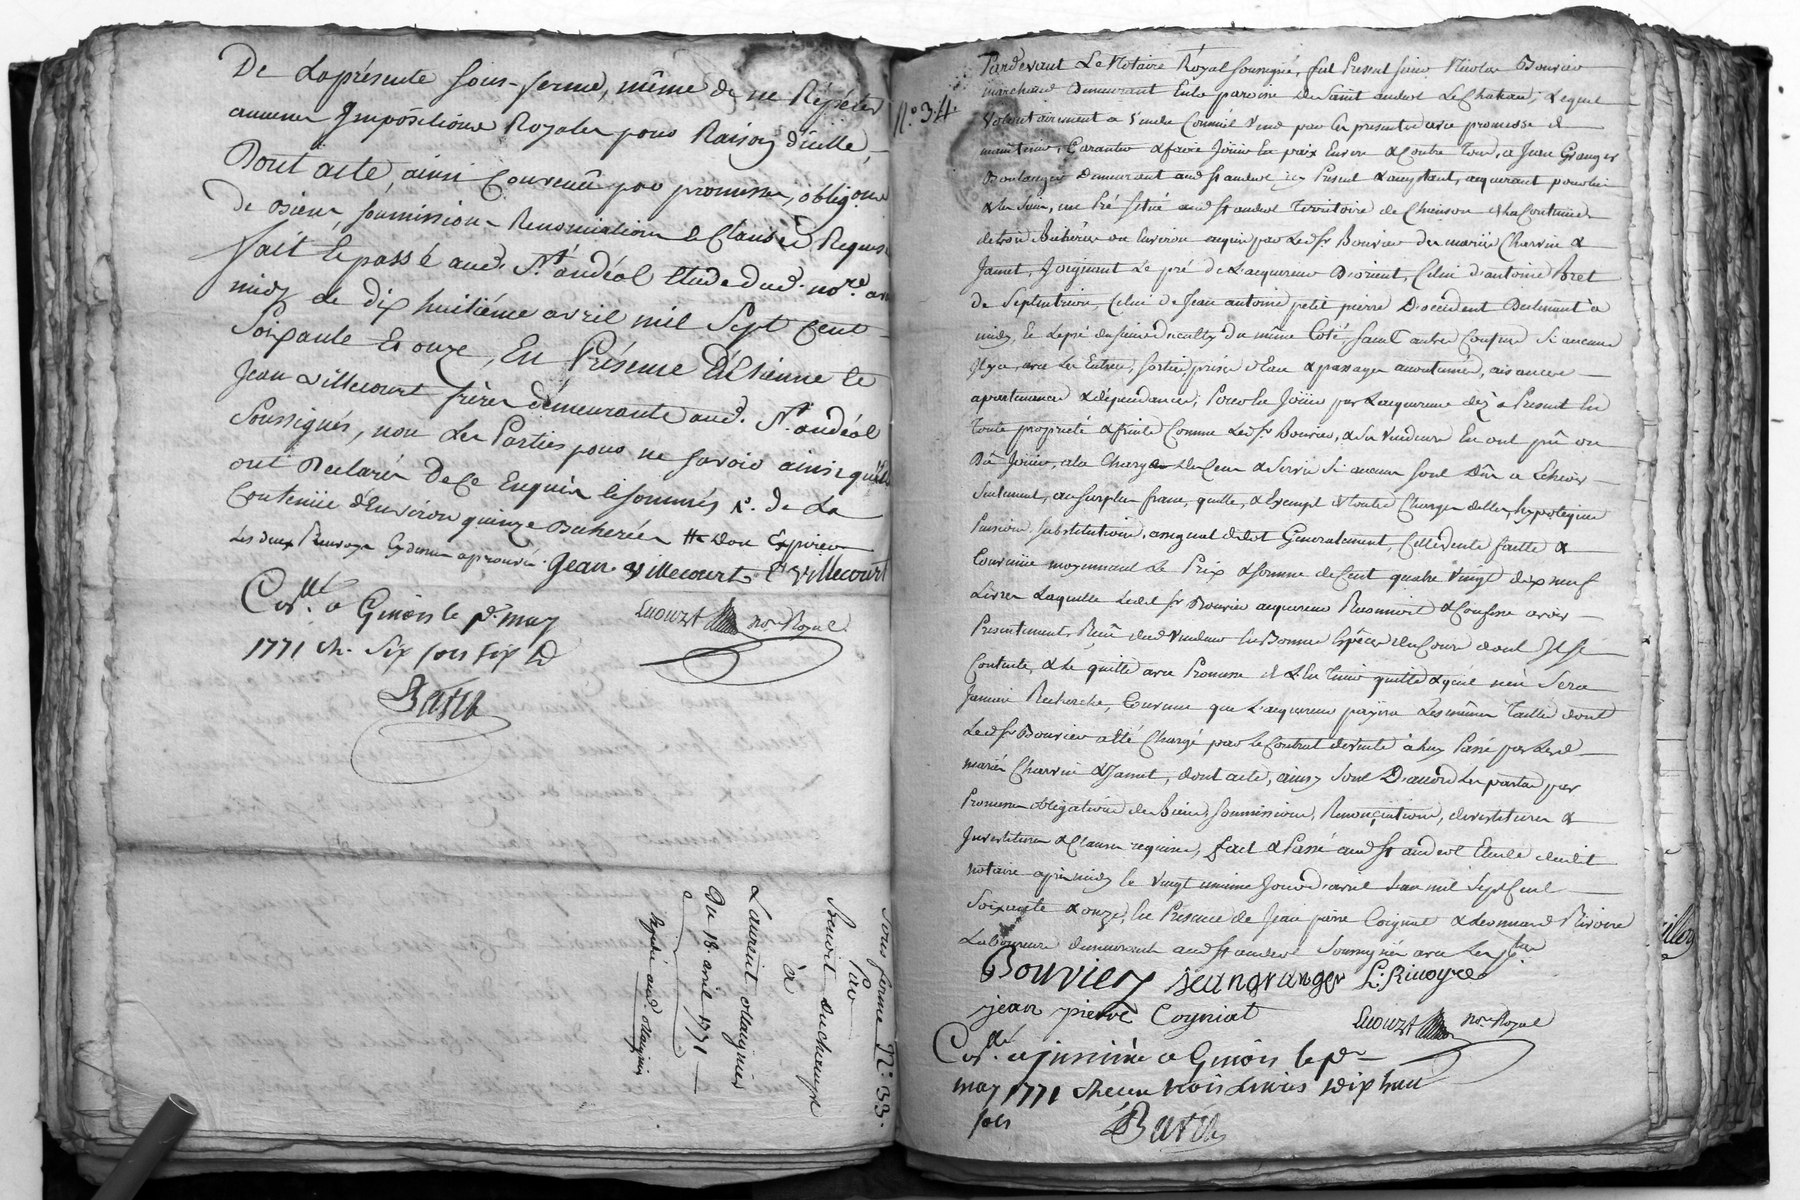 De Laprésente sous-ferme, même de ne Rejetter
aucunes Impositions Royales pour Raison d'icelle,
Dont acte, ainsi Convenû par promesses, obligons
de Biens, soumissions Renonciations & Clauses Requises
fait & passé aud. St. andéol Etude dud. nore. avant
midy de dix huitiéme avril mil Sept Cent
Soixante Et onze, En Présence d'Ethienne &
Jean villecourt frères demeurants aud. St. andéol
Soussignés, non Les Parties pour ne savoir ainsi qu'elles
ont Déclaré De ce Enquis & sommés de La
Contenüe d'Environ quinze Bicherées
Les deux Renvoys Cy dessus aprouvés Jean villecourt E villecourt
nore Royal.
Collé a Givors le pr. may
1771 Six sols six d
Sous ferme N.º 33.
Par
Benoit Duchamps
à
Laurent
Du 18. avril 1771
N.º 34.
Pardevant Le Notaire Royal soussigné, fut Présent sieur Nicolas Bouvier
marchand Demeurant En la paroisse de Saint andeol Le Chateau, Lequel
Volontairement a Vendu Comme il Vend par les presentes avec promesse de
maintenir, Garantir & faire Joüir En paix Envers & Contre Tous, a Jean Granger
Boulanger Demeurant aud St andeol, icy Present & acceptant, acquerant pour lui
& les siens, un Pré situé aud St andeol Territoire de Chainson de la Contenüe
de trois Bicherées ou Environ acquis par Led. Sr Bouvier des mariés Charvin &
Jamet, Joignant Le pré de L'acquereur D'orient, Celui d'antoine Poret
de Septentrion, Celui de Jean antoine petit pierre D'occident
midy du même Coté, Sauf autres Confins Si aucuns
Il y a, avec Ses Entrées, Sorties, prises d'Eau & passages accoutumés, aisances
apartenances & dépendances, Pour En Joüir par L'acquereur dez a Present En
Toute proprieté & fruits Comme Led. Sr Bouvier, & Ses Vendeurs En ont pû ou
Dû Joüir, a la Charge des Cens & Servis Si aucuns Sont Dûs a Echeoir
Seulement, au Surplus franc, quitte, & Exempt de toutes Charges dettes, hypoteques
Pensions, Substitutions, arrerages Generalement, Cette Vente faitte &
Convenüe moyennant Le Prix & Somme de Cent quatre Vingt dix neuf
Livres Laquelle Led. Sr Bouvier Reconnoit & Confesse avoir
Presentement Reçû En Bonnes Espéces de Cours dont Il se
Contente, & Le quitte avec Promesse de L'En Tenir quitte & qu'il n'en Sera
Jamais Recherché, Convenu que L'acquereur payera Les mêmes Tailles dont
Led. Sr Bouvier a été Chargé par Le Contrat de Vente à luy Passé par Lesd.
mariés Charvin & Jamet, dont acte, ainsy Sont D'accord Les parties par
Promesses obligations de Biens, Soumissions, Renonciations, devestitures &
Investitures & Clauses requises, fait & Passé aud St andeol Etude dudit
notaire après midy le Vingt unieme Jour d'avril L'an mil Sept Cent
Soixante & onze, En Presence de Jean pierre Coignat & Leonnard Rivoire
Laboureurs demeurants aud St andeol Soussignés avec Les pties
Bouvier jean granger L. Rivoyre
jean pierre Cogniat nore Royal
Collé et insinué a Givors le pr
may 1771 trois Livres dix huit
sols